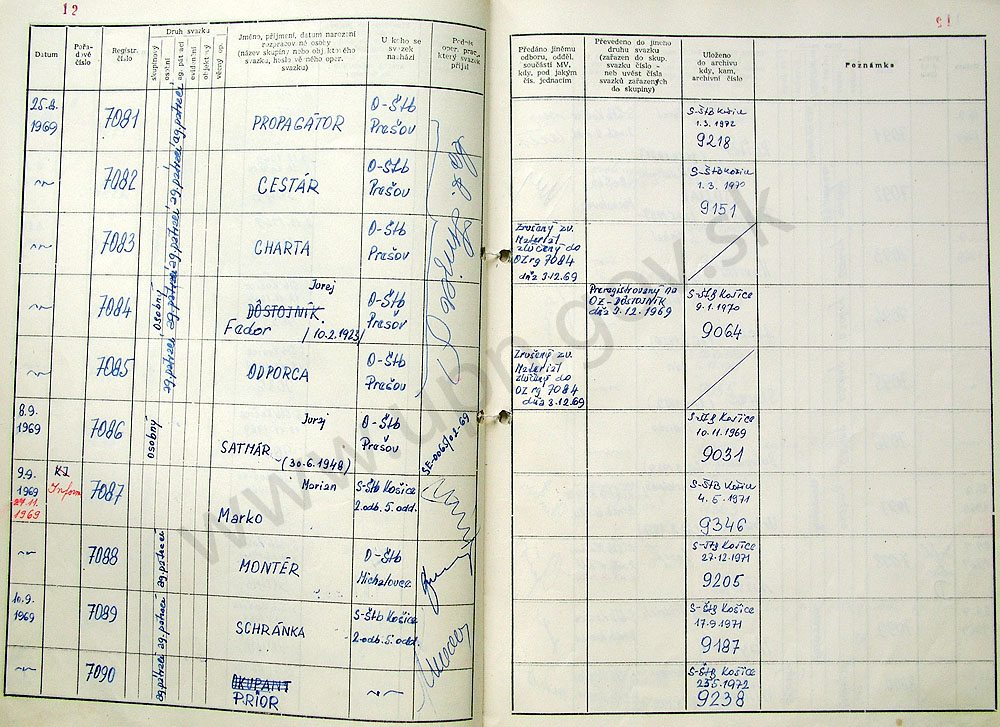 12
Datum
Pořadové číslo
Registr. číslo
Druh svazku
skupinový
osobní
ag. pátrací
evidenční
objektový
věcný op.
Jméno, příjmení, datum narození rozpracované osoby
(název skupiny nebo obj. kterého svazku, heslo věného oper. svazku)
U koho se svazek nachází
Podpis oper. prac. který svazek přijal
25.8. 1969 7081 ag. pátrací PROPAGÁTOR O-ŠtB Prešov
7082 ag. pátrací CESTÁR O-Štb Prešov
7083 ag. pátrací CHARTA O-Štb Prešov
7084 osobný ag. pátrací Jurej
DÔSTOJNÍK
Fedor (10.2.1923) O-Štb Prešov
7085 ag. pátrací ODPORCA O-Štb Prešov
8.9. 1969 7086 osobný Juraj
SATMÁR (30.6.1948) O-Štb Prešov SE-0065/02-69
9.9. 1969 KI Inform 7087 Marian
24.11. 1969
Marko S-Štb Košice 2.odb. 5.odd.
7088 ag. pátrací MONTÉR O-Štb Michalovce
10.9. 1969 7089 ag. pátrací SCHRÁNKA S-Štb Košice 2.odb. 5.odd.
7090 ag. pátrací OKUPANT
PRIOR
Předáno jinému odboru, odděl. součásti MV, kdy, pod jakým čís. jednacím
Převedeno do jiného druhu svazku (zařazen do skup. svazku číslo - neb uvést čísla svazků zařazených do skupiny)
Uloženo do archivu kdy, kam, archivní číslo
Poznámka
S-ŠtB Košice
1.3. 1972
9218
S-ŠtB Košice
1.3. 1970
9151
Zrušený zv.
Materiál
zlúčený do
OZ rg 7084
dňa 3.12.69
Preregistrovaný na
OZ - DÔSTOJNÍK
dňa 3.12.1969
S-Štb Košice
9.1.1970
9064
Zrušený zv.
Materiál
zlúčený do
OZ rg 7084
dňa 3.12.69
S-Štb Košice
10.11.1969
9031
S-ŠtB Košice
4.5.1971
9346
S-Štb Košice
27.12.1971
9205
S-ŠtB Košice
17.9.1971
9187
S-ŠtB Košice
23.5.1972
9238
www.upn.gov.sk